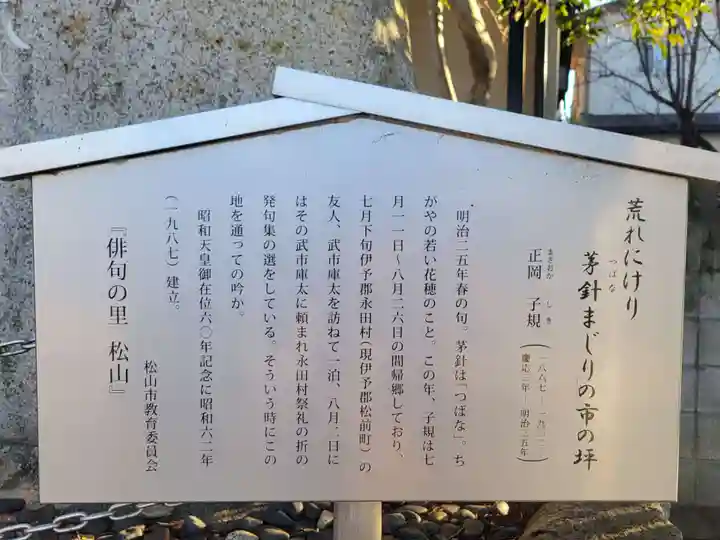 荒れにけり
茅針まじりの市の坪
つばな
正岡 子規
まさおか しき
明治二五年春の句。茅針は「つばな」。ち
がやの若い花穂のこと。この年、子規は七
月一一日〜八月二六日の間帰郷しており、
七月下旬伊予郡永田村(現伊予郡松前町)の
友人、武市庫太を訪ねて一泊、八月二日に
はその武市庫太に頼まれ永田村祭礼の折の
発句集の選をしている。そういう時にこの
地を通っての吟か。
昭和天皇御在位六〇年記念に昭和六二年
(一九八七)建立。
松山市教育委員会
『俳句の里 松山』